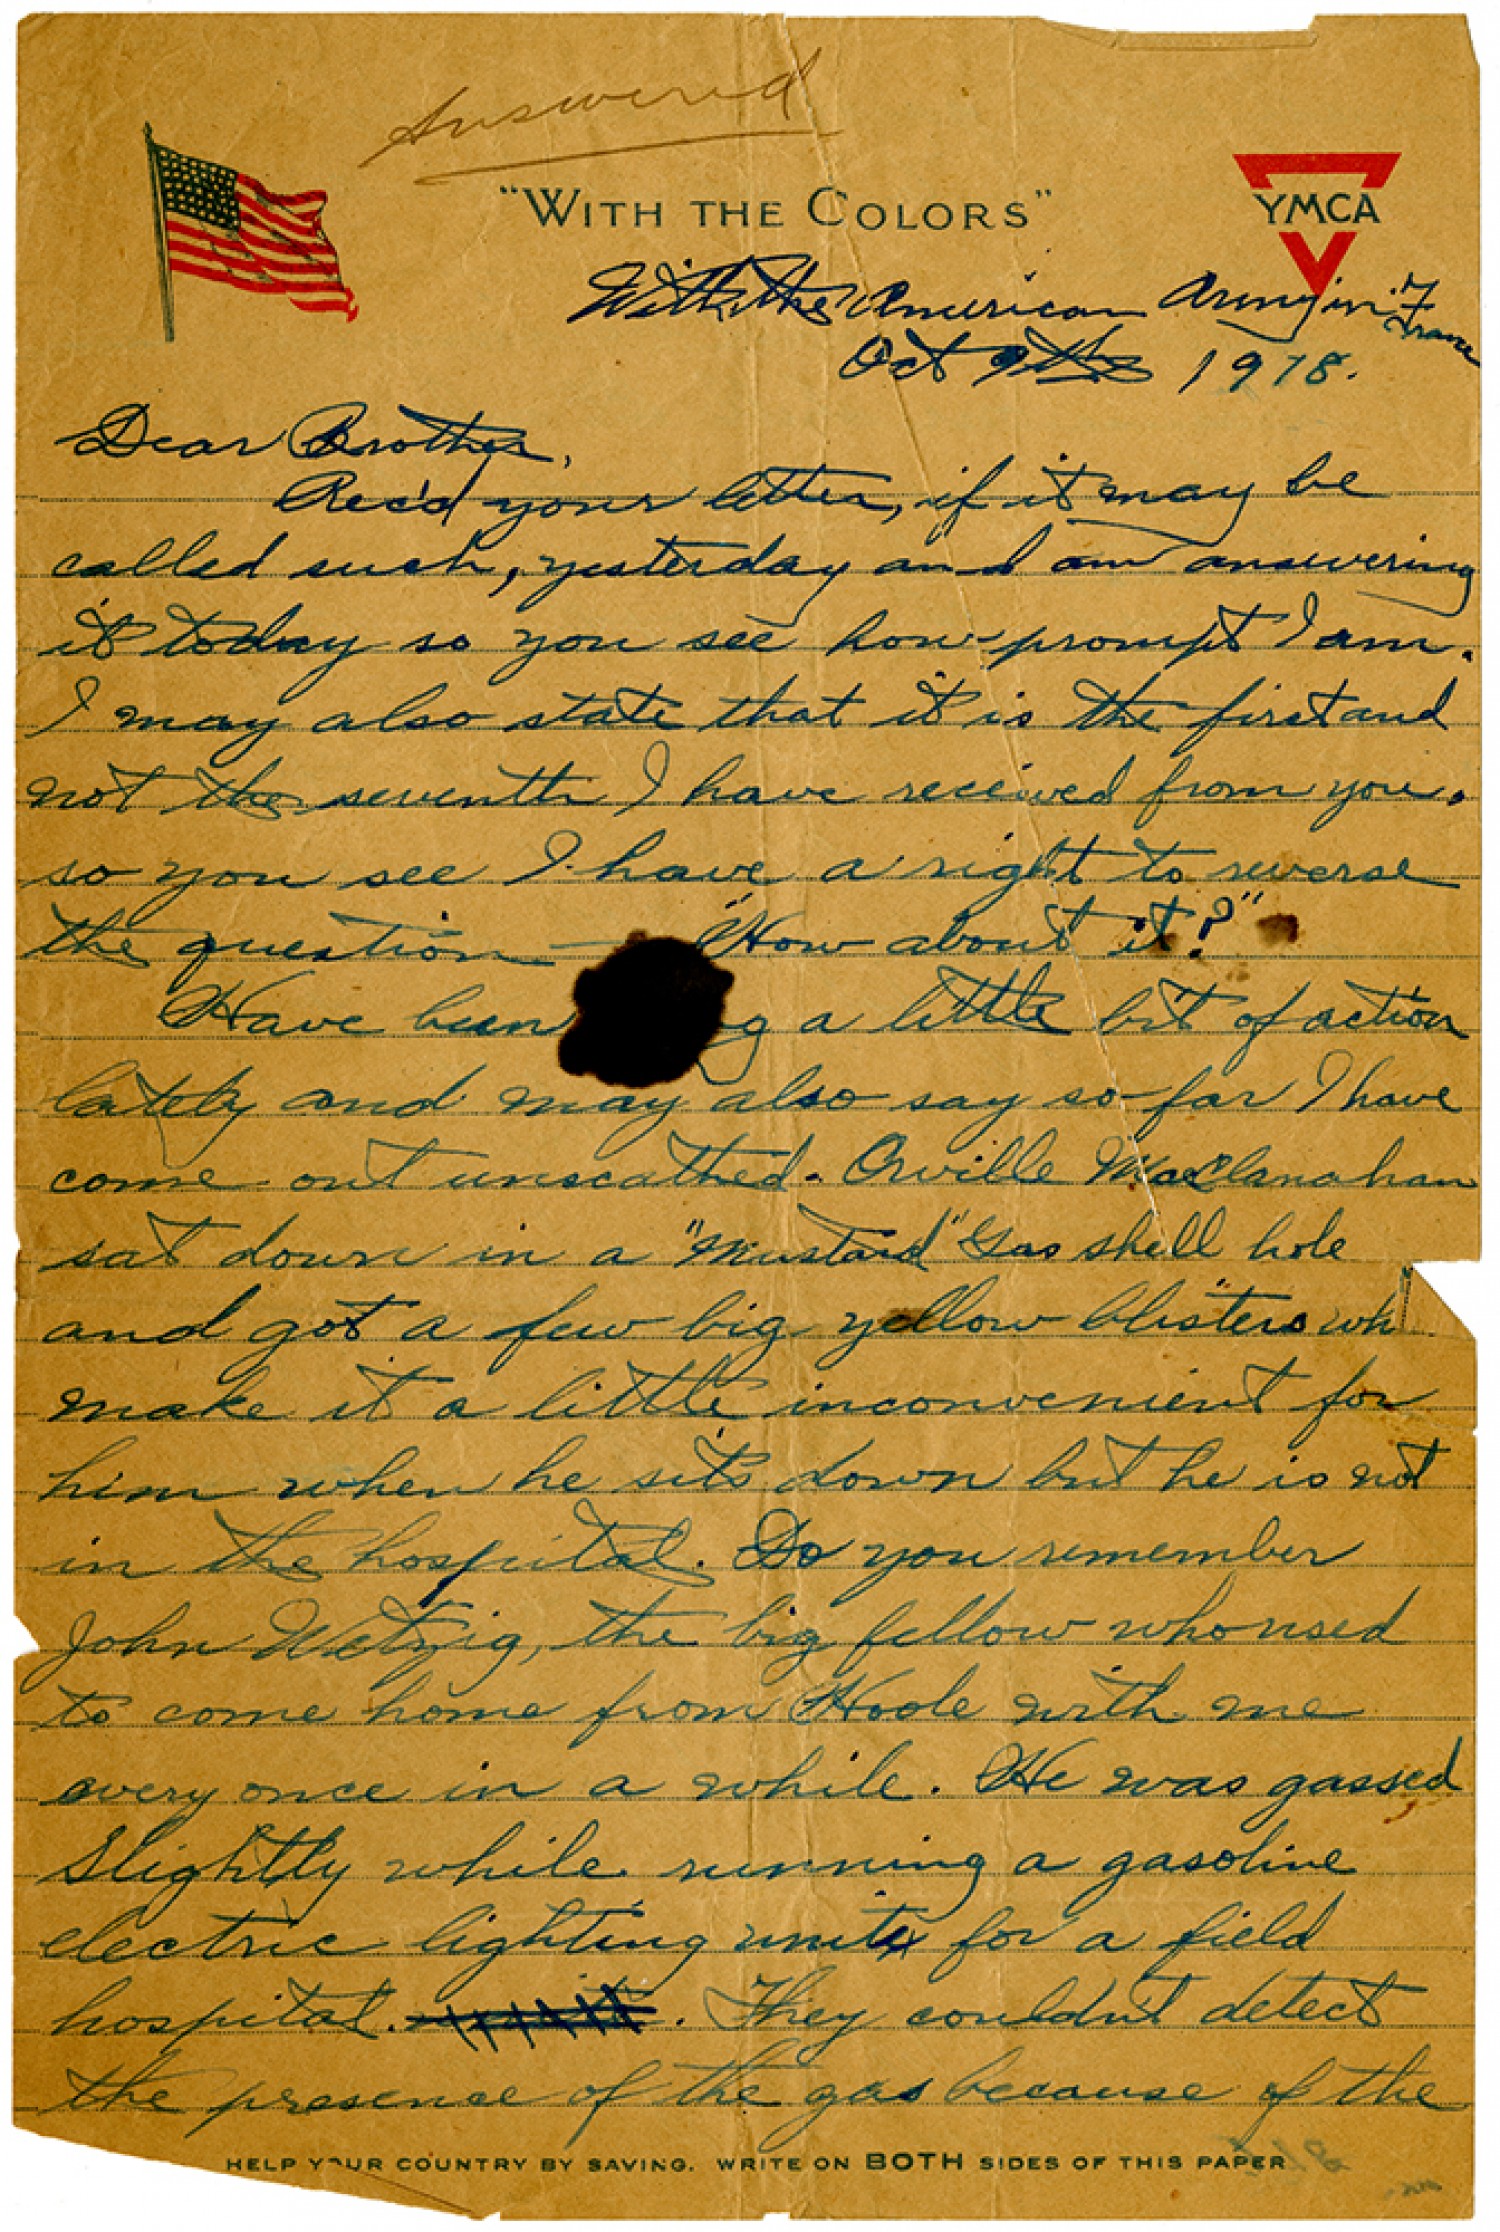 Answered
"WITH THE COLORS"
YMCA
With the American Army in France
Oct 9th 1918.
Dear Brother,
Rec'd your letter, if it may be
called such, yesterday and am answering
it today so you see how prompt I am.
I may also state that it is the first and
not the seventh I have received from you,
so you see I have a right to reverse
the question — "How about it?"
Have been g a little bit of action
lately and may also say so far I have
come out unscathed. Orville MacClanahan
sat down in a "Mustard" Gas shell hole
and got a few big yellow blisters wh
make it a little inconvenient for
him when he sits down but he is not
in the hospital. Do you remember
John Wetzig, the big fellow who used
to come home from Hoole with me
every once in a while. He was gassed
slightly while running a gasoline
electric lighting unit for a field
hospital. . They couldn't detect
the presence of the gas because of the
HELP YOUR COUNTRY BY SAVING. WRITE ON BOTH SIDES OF THIS PAPER